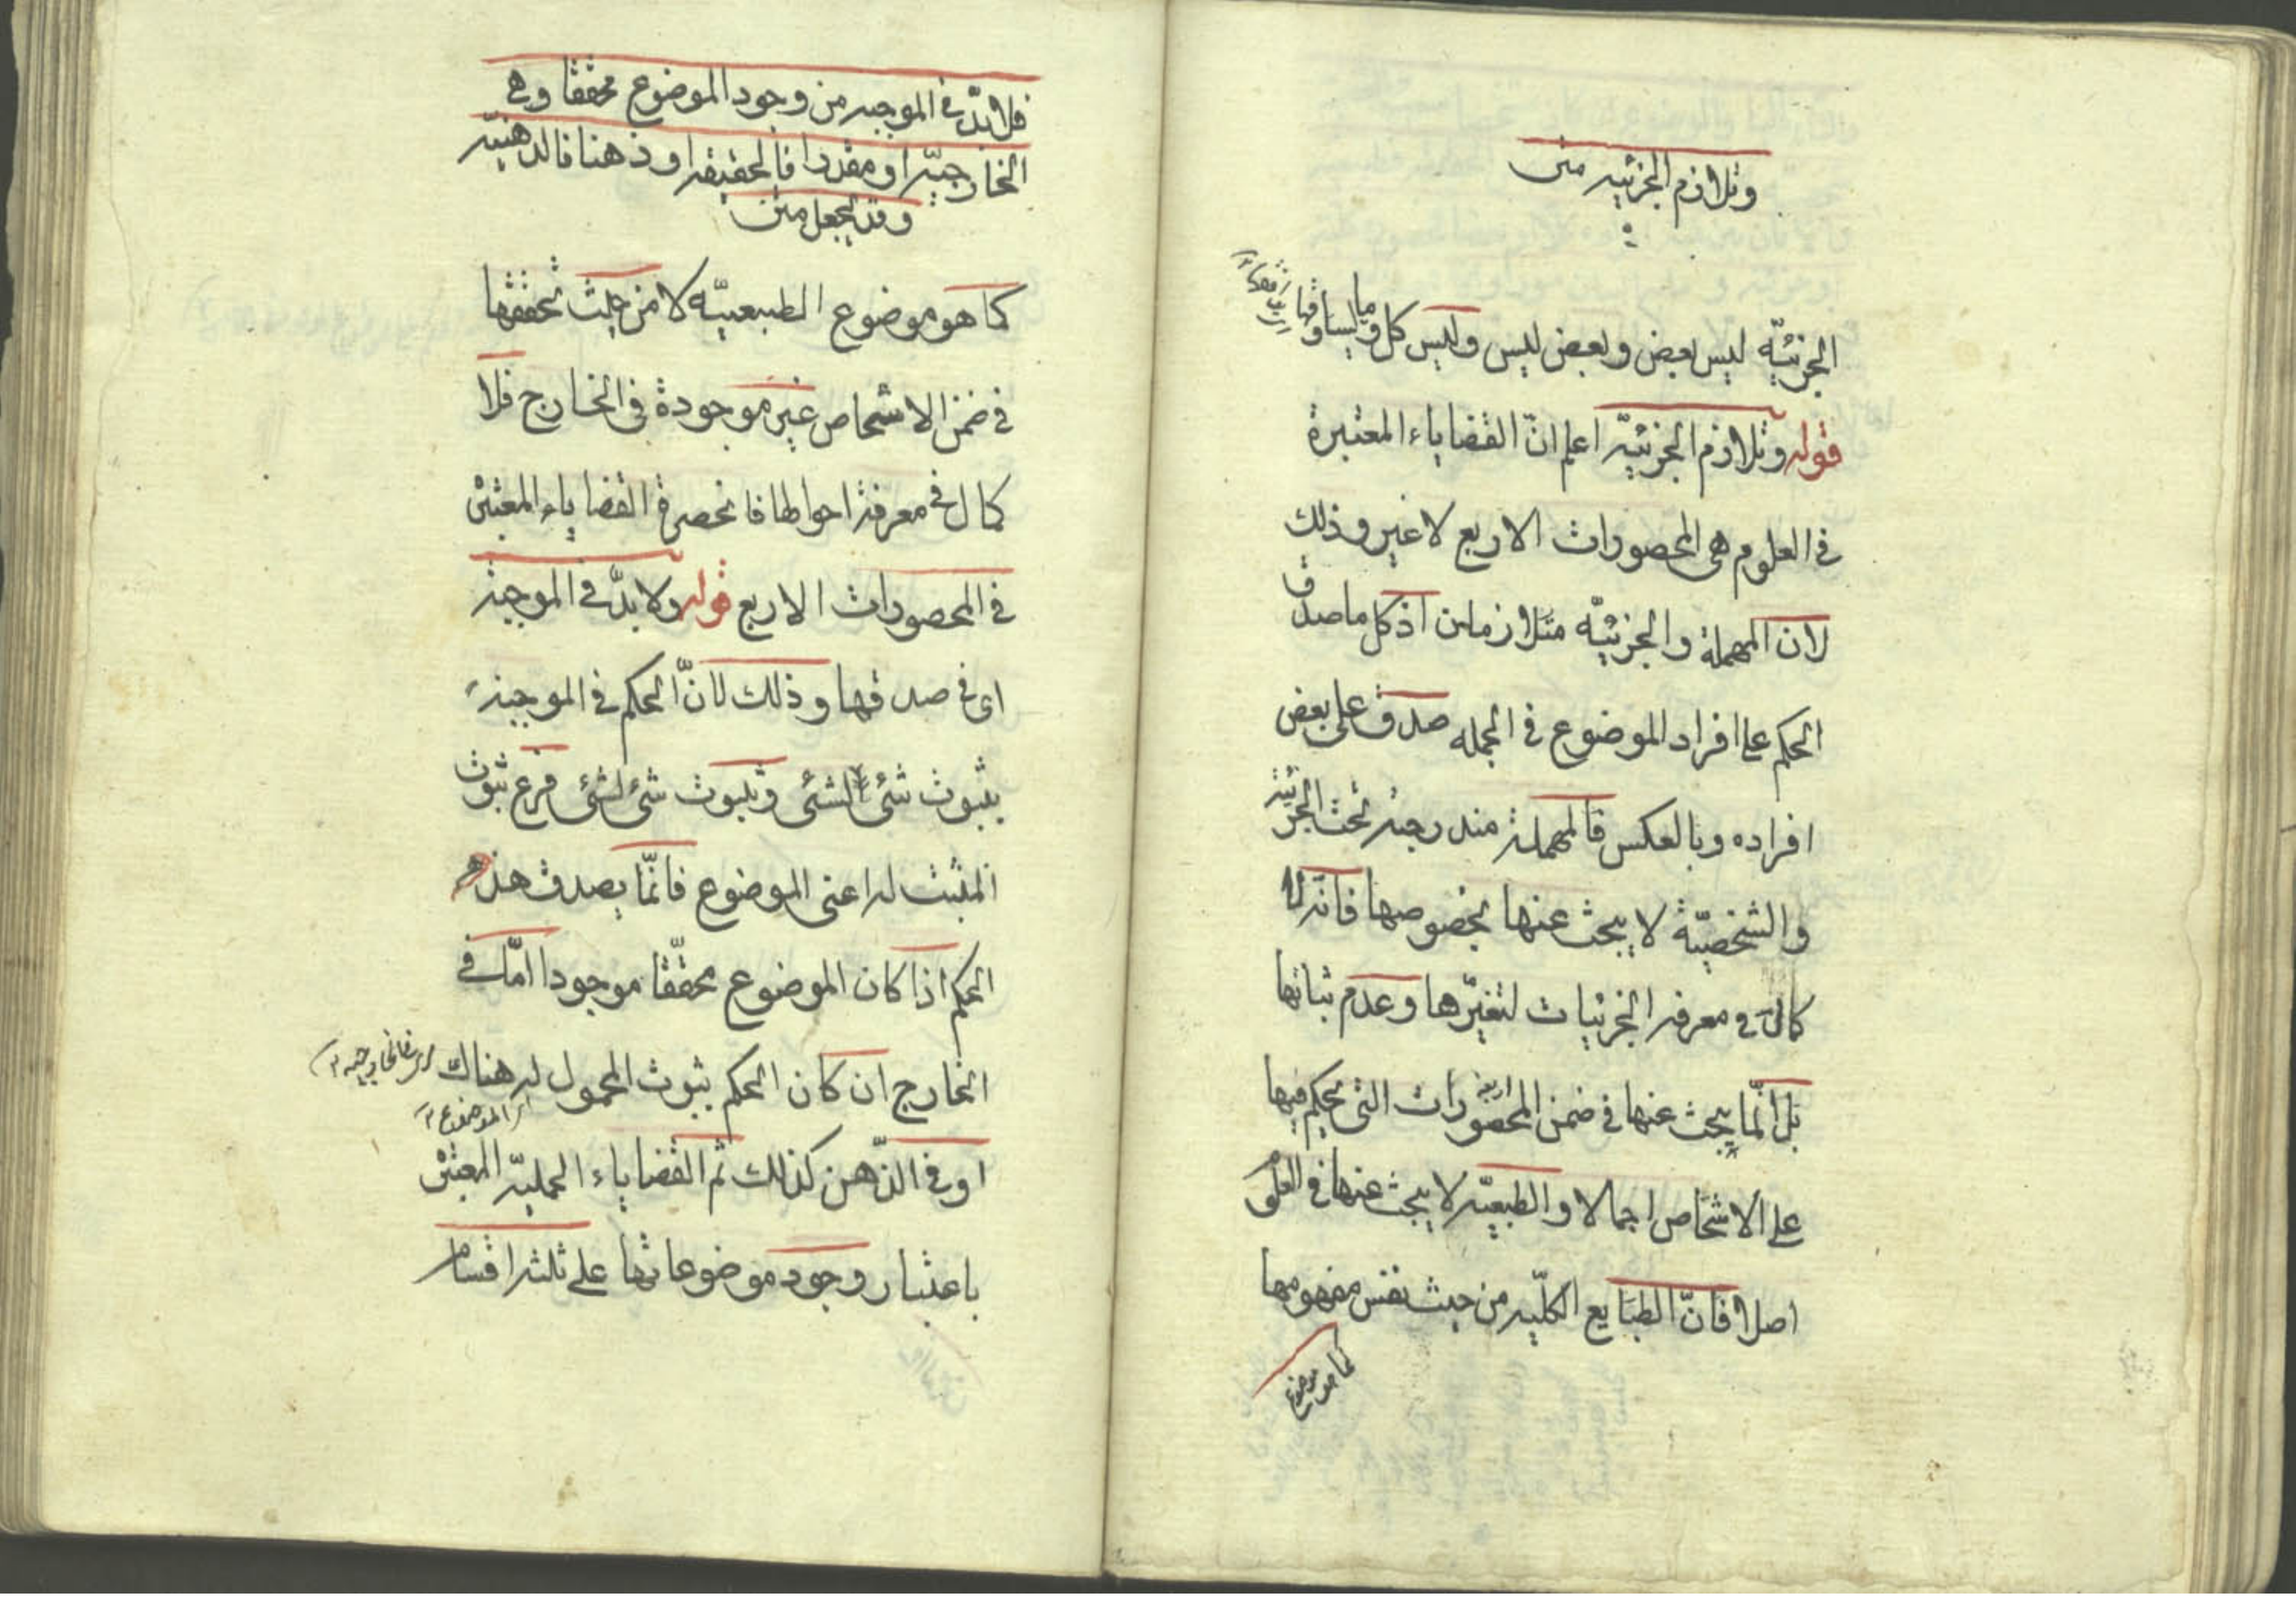 وتلازم الجزئيه متن
الجزئيّة ليس بعض وبعض ليس وليس كل وما يساوقها
قوله وتلازم الجزئيّه اعلم انّ القضاياء المعتبرة
فى العلوم هى المحصورات الاربع لا غير وذلك
لان المهملة والجزئيّة متلازمان اذ كل ما صدق
الحكم على افراد الموضوع فى الجمله صدق على بعض
افراده وبالعكس فالمهملة مندرجة تحت الجزئية
والشخصيّة لا يبحث عنها بخصوصها فانه لا
كمال فى معرفه الجزئيات لتغيّرها وعدم ثباتها
بل انّما يبحث عنها فى ضمن المحصورات التى يحكم فيها
الاربعة
على الاشخاص اجمالا والطبيعيّه لا يبحث عنها فى العلوم
اصلا فانّ الطبايع الكلّيه من حيث نفس مفهومها
كما هو موضوع
فلا بدّ فى الموجبه من وجود الموضوع محققا وهى
الخارجيّه او مقدرا فالحقيقه او ذهنا فالذهنيّه
وقد يجعل متن
كما هو موضوع الطبيعيّه لا من حيث تحققها
فى ضمن الاشخاص غير موجودة فى الخارج فلا
كمال فى معرفة احوالها فانحصرة القضاياء المعتبرة
فى المحصورات الاربع قوله ولا بدّ فى الموجبة
اى فى صدقها وذلك لانّ الحكم فى الموجبة
بثبوت شئ لشئ وثبوت شئ لشئ فرع ثبوت
المثبت له اعنى الموضوع فانّما يصدق هذه
الحكم اذا كان الموضوع محقّقا موجودا امّا فى
الخارج ان كان الحكم بثبوت المحمول له هناك
اى الموضوع
او فى الذّهن كذلك ثم القضاياء الحمليّه المعتبرة
باعتبار وجود موضوعاتها على ثلثه اقسام